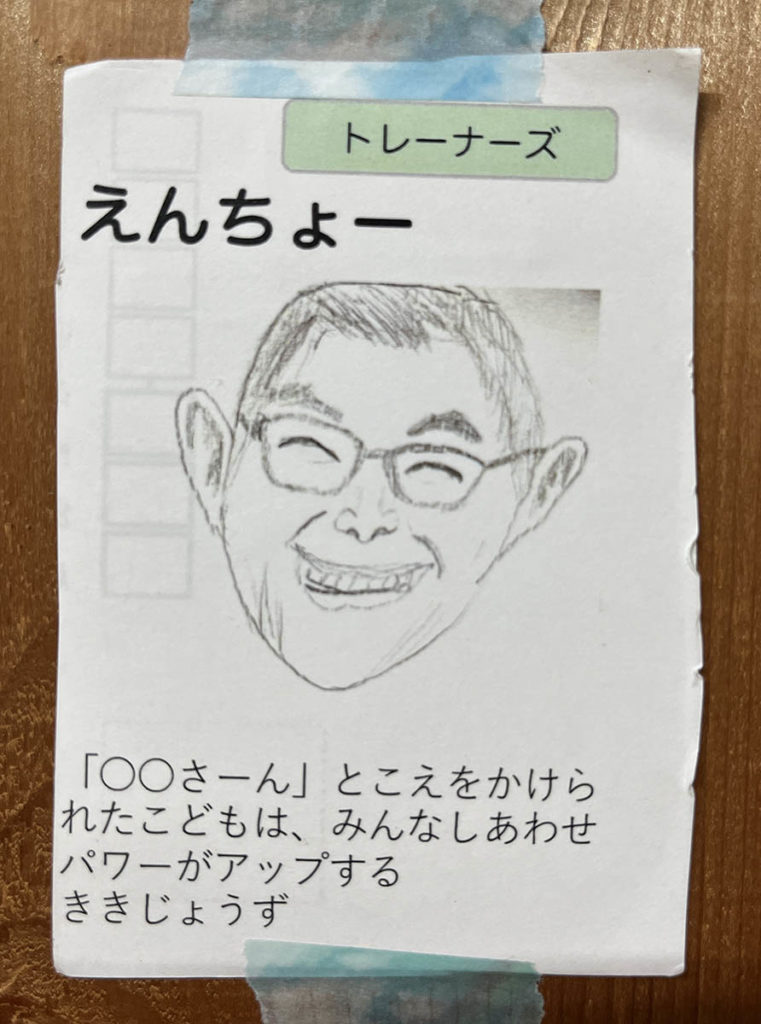 トレーナーズ
えんちょー
「〇〇さーん」とこえをかけら
れたこどもは、みんなしあわせ
パワーがアップする
ききじょうず